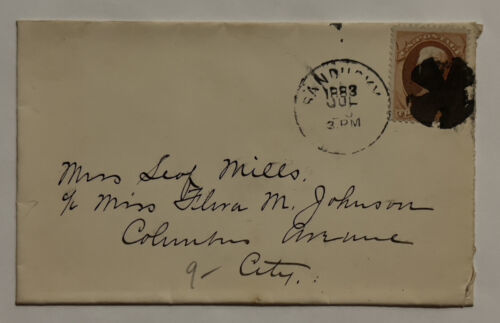 SANDUSKY
1883
JUL
3 PM
Miss Leaf Mills.
c/o Miss Flora M. Johnson
Columbus Avenue
9- City.